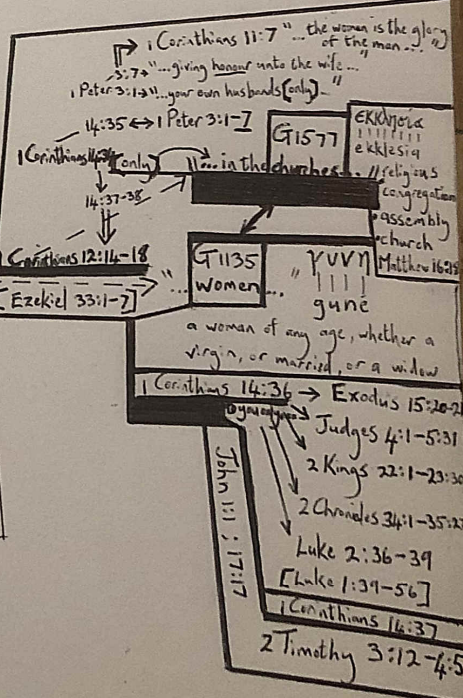 1 Corinthians 11:7 "... the woman is the glory
of the man..."
3:7→"...giving honour unto the wife..."
1 Peter 3:1→"...your own husbands[only]..."
14:35 ↔ 1 Peter 3:1-7
1 Corinthians 14:34 [only] "... in the churches...
14:37-38
G1577
εκκλησία
ekklesia
religious
congregation
assembly
church
Matthew 16:18
1 Corinthians 12:14-18
[Ezekiel 33:1-7]
"... G1135
women ..."
γυνη
gune
a woman of any age, whether a
virgin, or married, or a widow
1 Corinthians 14:36 → Exodus 15:20-21
Judges 4:1-5:31
2 Kings 22:1-23:30
2 Chronicles 34:1-35:27
Luke 2:36-39
[Luke 1:39-56]
John 1:1; 17:17
1 Corinthians 14:37
2 Timothy 3:12-4:5